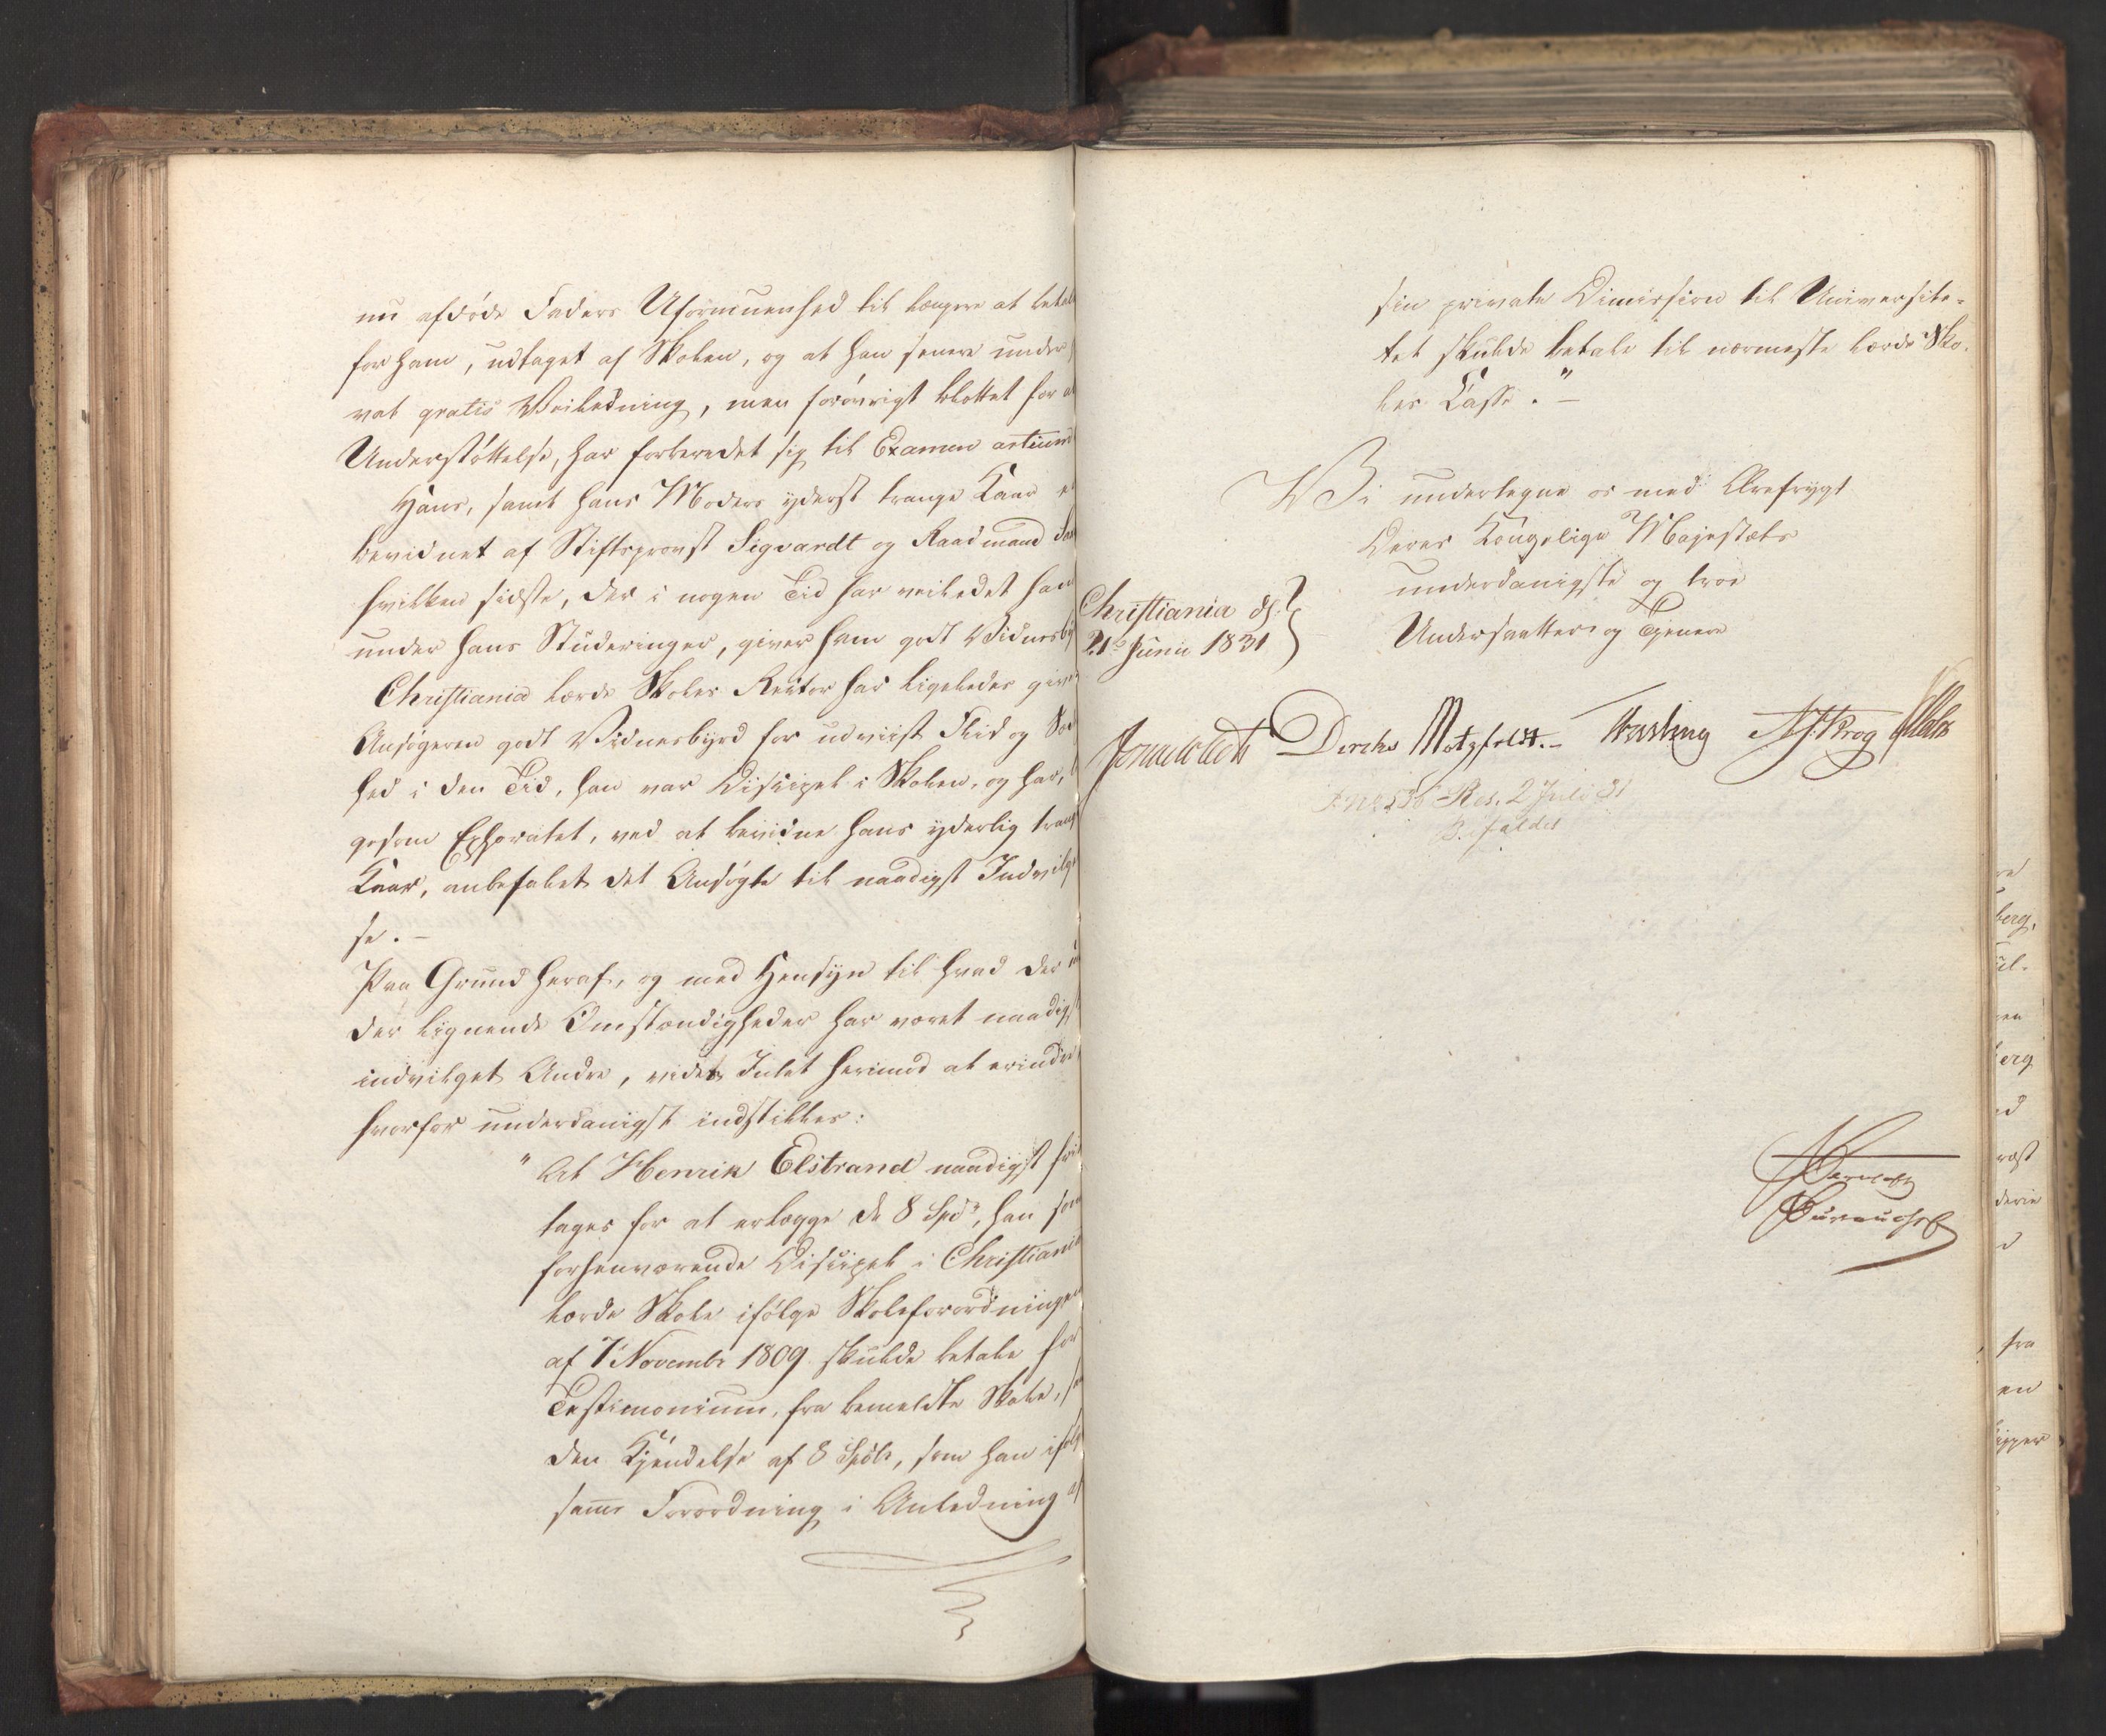 nu afdøde Faders Uformuenhed til længere at betale
for ham, udtaget af Skolen, og at han senere under
vat gratis Veiledning, men forøvrigt blottet for al
Understøttelse, har forberedet sig til Examen artium
Hans, samt hans Moders yderst trange Kaar er
bevidnet af Stiftsprovst Sigvardt og Raadmand
hvilken sidste, der i nogen Tid har veiledet ham
under hans Studeringer, giver ham godt Vidnesby
Christiania lærde Skoles Rector har ligeledes givet
Ansøgeren godt Vidnesbyrd for udviist Flid og Sæd
hed i den Tid, han var Discipel i Skolen, og har, li
gesom Ephoratet, ved at bevidne hans yderlig trange
Kaar, anbefalet det Ansøgte til naadigst Indvilgel
se. –
Paa Grund heraf, og med Hensyn til hvad der un
der lignende Omstændigheder har været naadigst
indvilget Andre, vides Intet herimod at erindre
hvorfor underdanigst indstilles:
"At Henrik Elstrand naadigst fri
tages for at erlægge de 8 Spd, han som
forhenværende Discipel i Christiania
lærde Skole ifølge Skoleforordningen
af 7 Novembr 1809 skulde betale for
Testimonium, fra bemeldte Skole, sa
den Kjendelse af 8 Spdlr, som han ifølge
samme Forordning i Anledning af
sin private Dimission til Universite-
tet skulde betale til nærmeste lærde Sko-
les Casse." –
Vi undertegne os med Ærefrygt
Deres Kongelige Majestæts
underdanigste og troe
Undersaatter og Tjenere
Christiania d.
21 Junii 1831
Diriks Motzfeldt. – Treschow Krog
Res. 2 Juli 31
Bifaldes